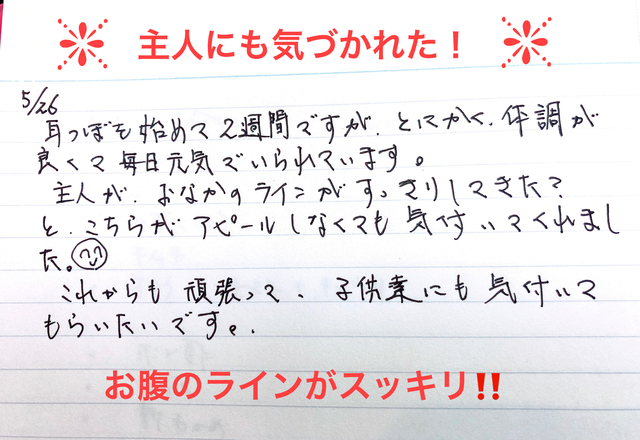 主人にも気づかれた！
5/26
耳つぼを始めて2週間ですが、とにかく、体調が
良くて毎日元気でいられています。
主人が、おなかのラインがすっきりしてきた？
と、こちらがアピールしなくても気付いてくれまし
た。
これからも頑張って、子供達にも気付いて
もらいたいです。
お腹のラインがスッキリ‼